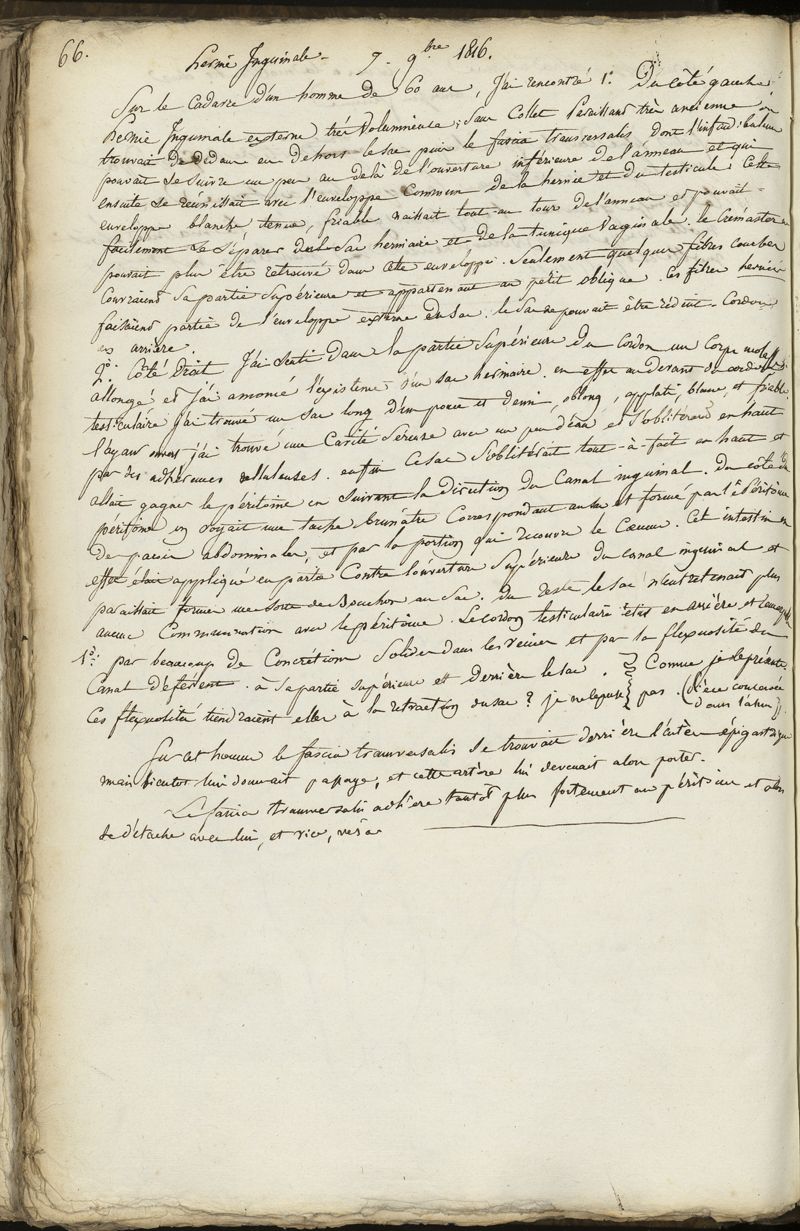 66.
hernie Inguinale - 7. 9bre 1816.
Sur le Cadavre d'un homme de 60 ans, J'ai rencontré 1.° Du côté gauche
hernie Inguinale externe très volumineuse, sans Collet paraissant très ancienne. on
trouvait de dedans en dehors le sac puis le fascia transversalis dont l'infundibulum
pouvait se suivre un peu au delà de l'ouverture inférieure de l'anneau et qui
ensuite se réunissait avec l'enveloppe Commune de la hernie et du testicule. Cette
enveloppe blanche, tenue, friable naissait tout-au tour de l'anneau et pouvait
facilement se séparer du sac herniaire et de la tunique vaginale. le Crémaster ne
pouvait plus être retrouvé dans cette enveloppe. Seulement quelques fibres courbes
Couvraient sa partie supérieure et appartenant au petit oblique. Ces fibres
faisaient partie de l'enveloppe externe du sac. le sac ne pouvait être réduit - Cordon
en arrière.
2.° Côté Droit J'ai senti dans la partie supérieure du Cordon un Corps molasse
allongé et j'ai annoncé l'existence d'un sac herniaire. en effet au devant du cordon
testiculaire j'ai trouvé un sac long d'un pouce et demi, oblong, applati, blanc, et friable
l'ayant ouvert j'ai trouvé une Cavité séreuse avec un peu d'eau et s'oblitérant en haut
par des adhérences celluleuses. enfin ce sac s'oblitérait tout-à-fait en haut et
allait gagner le péritoine en suivant la direction du Canal inguinal. Du côté du
péritoine on voyait une tache brunâtre Correspondant au sac et formé par le péritoine
des parois abdominales, et par la portion qui recouvre le Cæcum. Cet intestin en
effet était appliqué en partie Contre l'ouverture supérieure du canal inguinal et
paraissait former une sorte de Bouchon au sac. Du reste le sac n'entretenait plus
aucune Communication avec le péritoine. Le cordon testiculaire était en arrière et
1.° par beaucoup de Concrétions Solides dans les veines et par la flexuosité du
Canal déférent. à sa partie supérieure et derrière le sac. Comme je le présente.
Ces flexuosités tiendraient elles à la retraction du sac? je ne le pense pas.
Sur cet homme le fascia transversalis se trouvait derrière l'artère épigastrique
mais bientôt lui donnait passage, et cette artère lui devenait alors
Le fascia transversalis adhère tantôt plus fortement au péritoine et alors
se détache avec lui, et vice, versâ